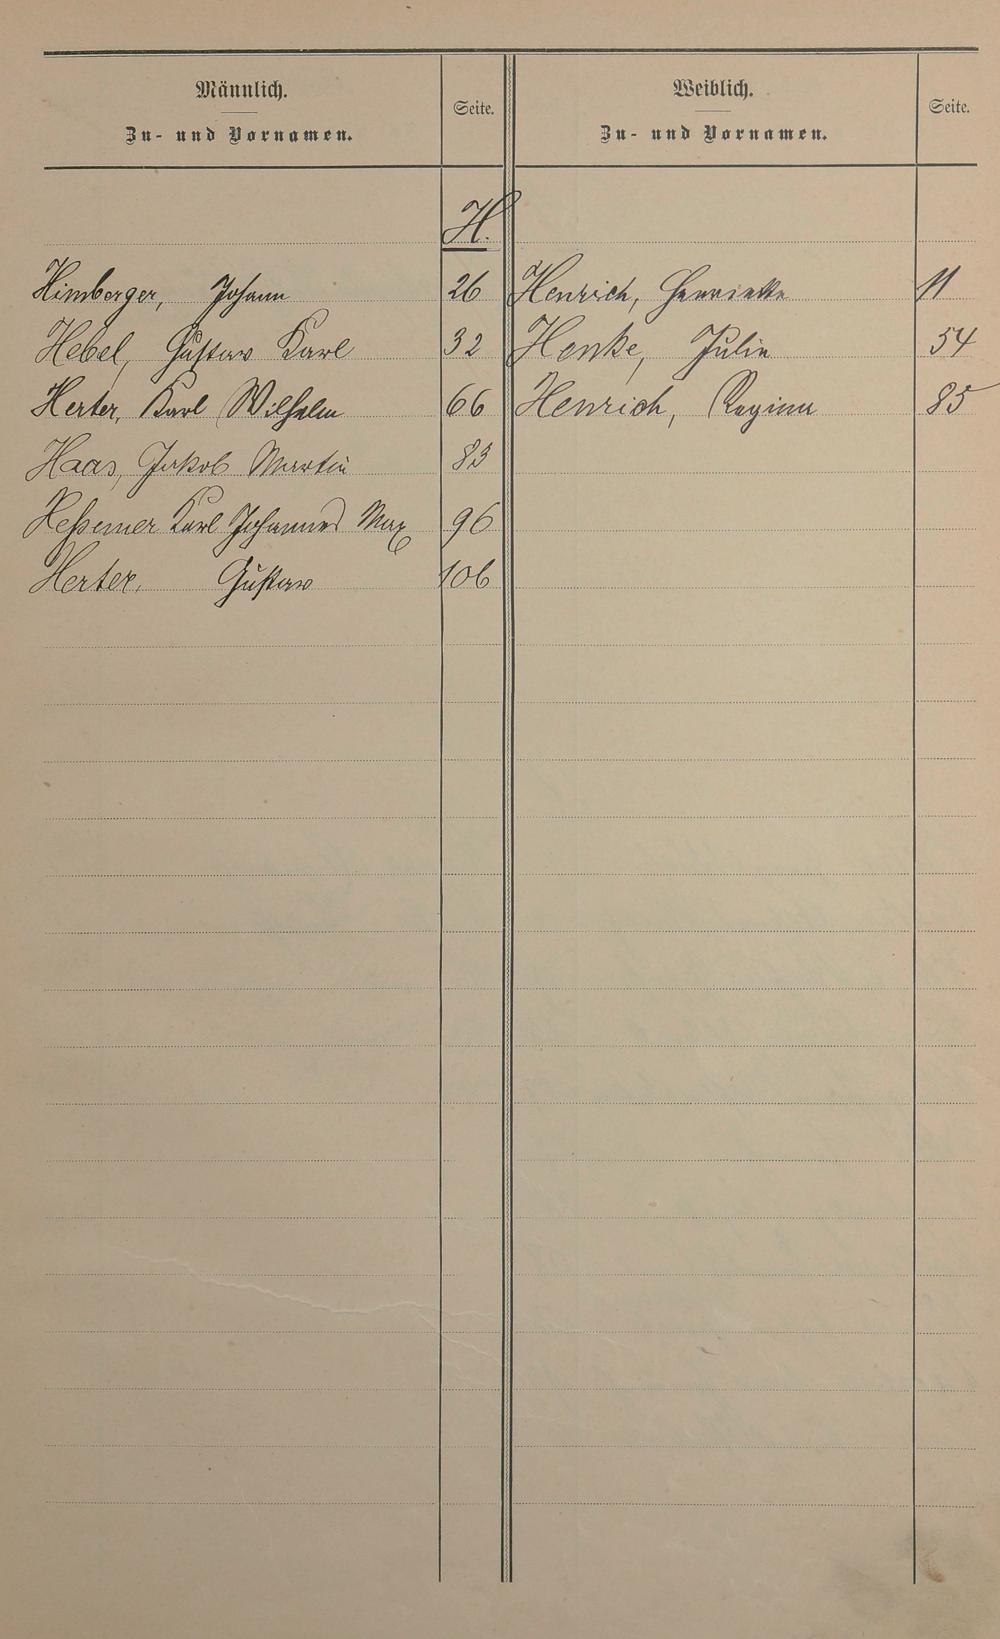 Männlich.
Zu- und Vornamen.
Seite.
Weiblich.
Zu- und Vornamen.
Seite.
H.
Himberger, Johann 26 Henrich, Henriette 11
Hebel, Gustav Karl 32 Henke, Julie 54
Herter, Karl Wilhelm 66 Henrich, Regina 85
Haas, Jakob Martin 83
Heßemer Karl Johannes Max 96
Herter, Gustav 106